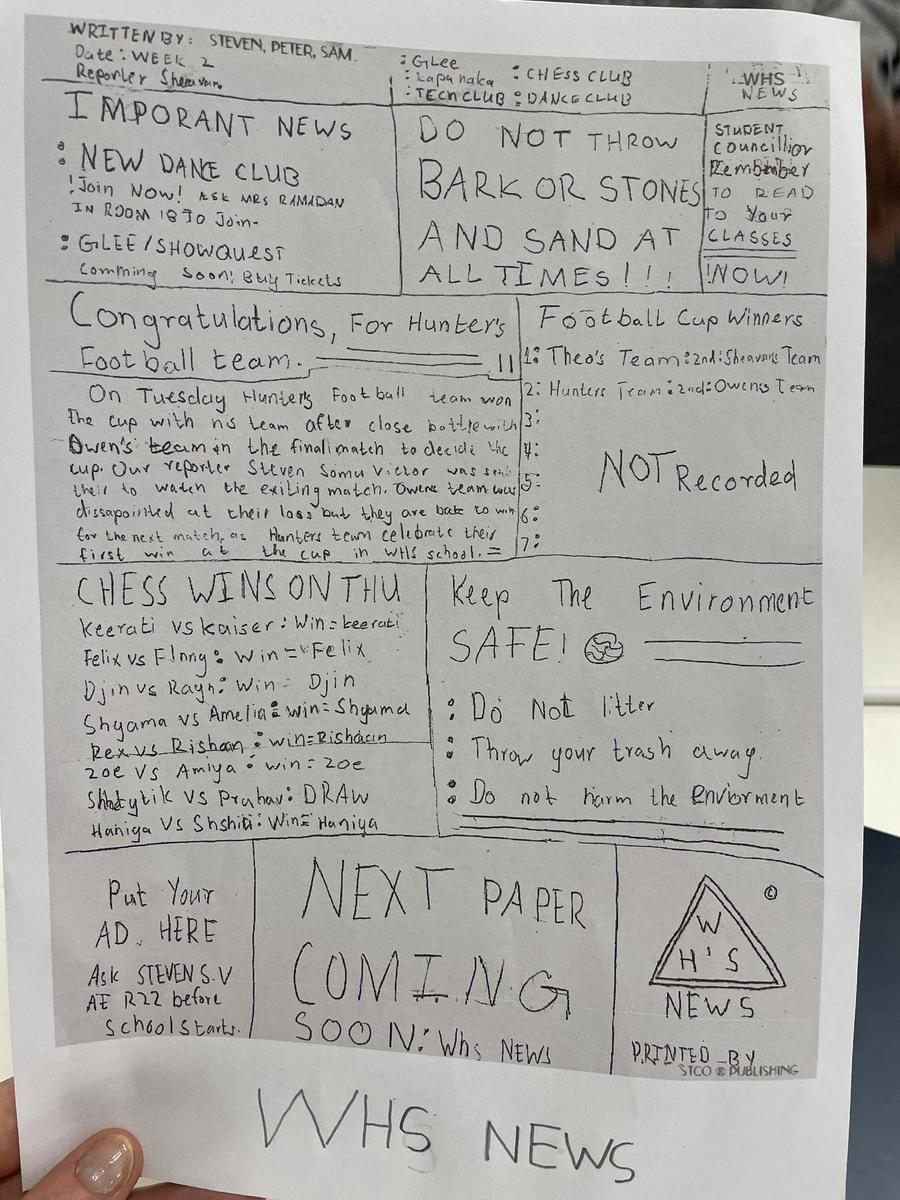 WRITTEN BY: STEVEN, PETER, SAM.
Date: WEEK 2
Reporter Sheavan
: GLee
: kapa haka
: TECH CLUB
: CHESS CLUB
: DANCE CLUB
WHS
NEWS
IMPORANT NEWS
: NEW DANCE CLUB
! Join Now! ASK MRS RAMADAN
IN ROOM 18 TO Join-
: GLEE/SHOWQUEST
comming soon! Buy Tickets
DO NOT THROW
BARK OR STONES
AND SAND AT
ALL TIMES!!!
STUDENT
councillior
Remember
TO READ
To Your
CLASSES
!NOW!
Congratulations, For Hunter's
Football team.
On Tuesday Hunter's Football team won
the cup with his team after close battle with
Owen's team in the final match to decide the
cup. Our reporter Steven Somu Victor was sent
their to watch the exiting match. Owens team was
dissapointed at their loss but they are back to win
for the next match, as Hunters team celebrate their
first win at the cup in WHS school.
Football Cup Winners
1: Theo's Team: 2nd: Sheavans Team
2: Hunters Team: 2nd: Owens Team
3:
4:
5:
6:
7:
NOT Recorded
CHESS WINS ON THU
Keerati vs Kaiser: Win = keerati
Felix vs Finny: Win = Felix
Djin vs Rayn: Win = Djin
Shyama vs Amelia: win = Shyama
Rex vs Rishaan: win = Rishaan
Zoe Vs Amiya: win = Zoe
vs Prahav: DRAW
Haniya Vs Shshiti: Win = Haniya
Keep The Environment
SAFE!
: Do Not litter
: Throw your trash away.
: Do not harm the enviorment
Put Your
AD. HERE
Ask STEVEN S.V
AT R22 before
school starts.
NEXT PAPER
COMING
SOON: Whs NEWS
©
W
H'S
NEWS
PRINTED BY
STCO ® PUBLISHING
WHS NEWS